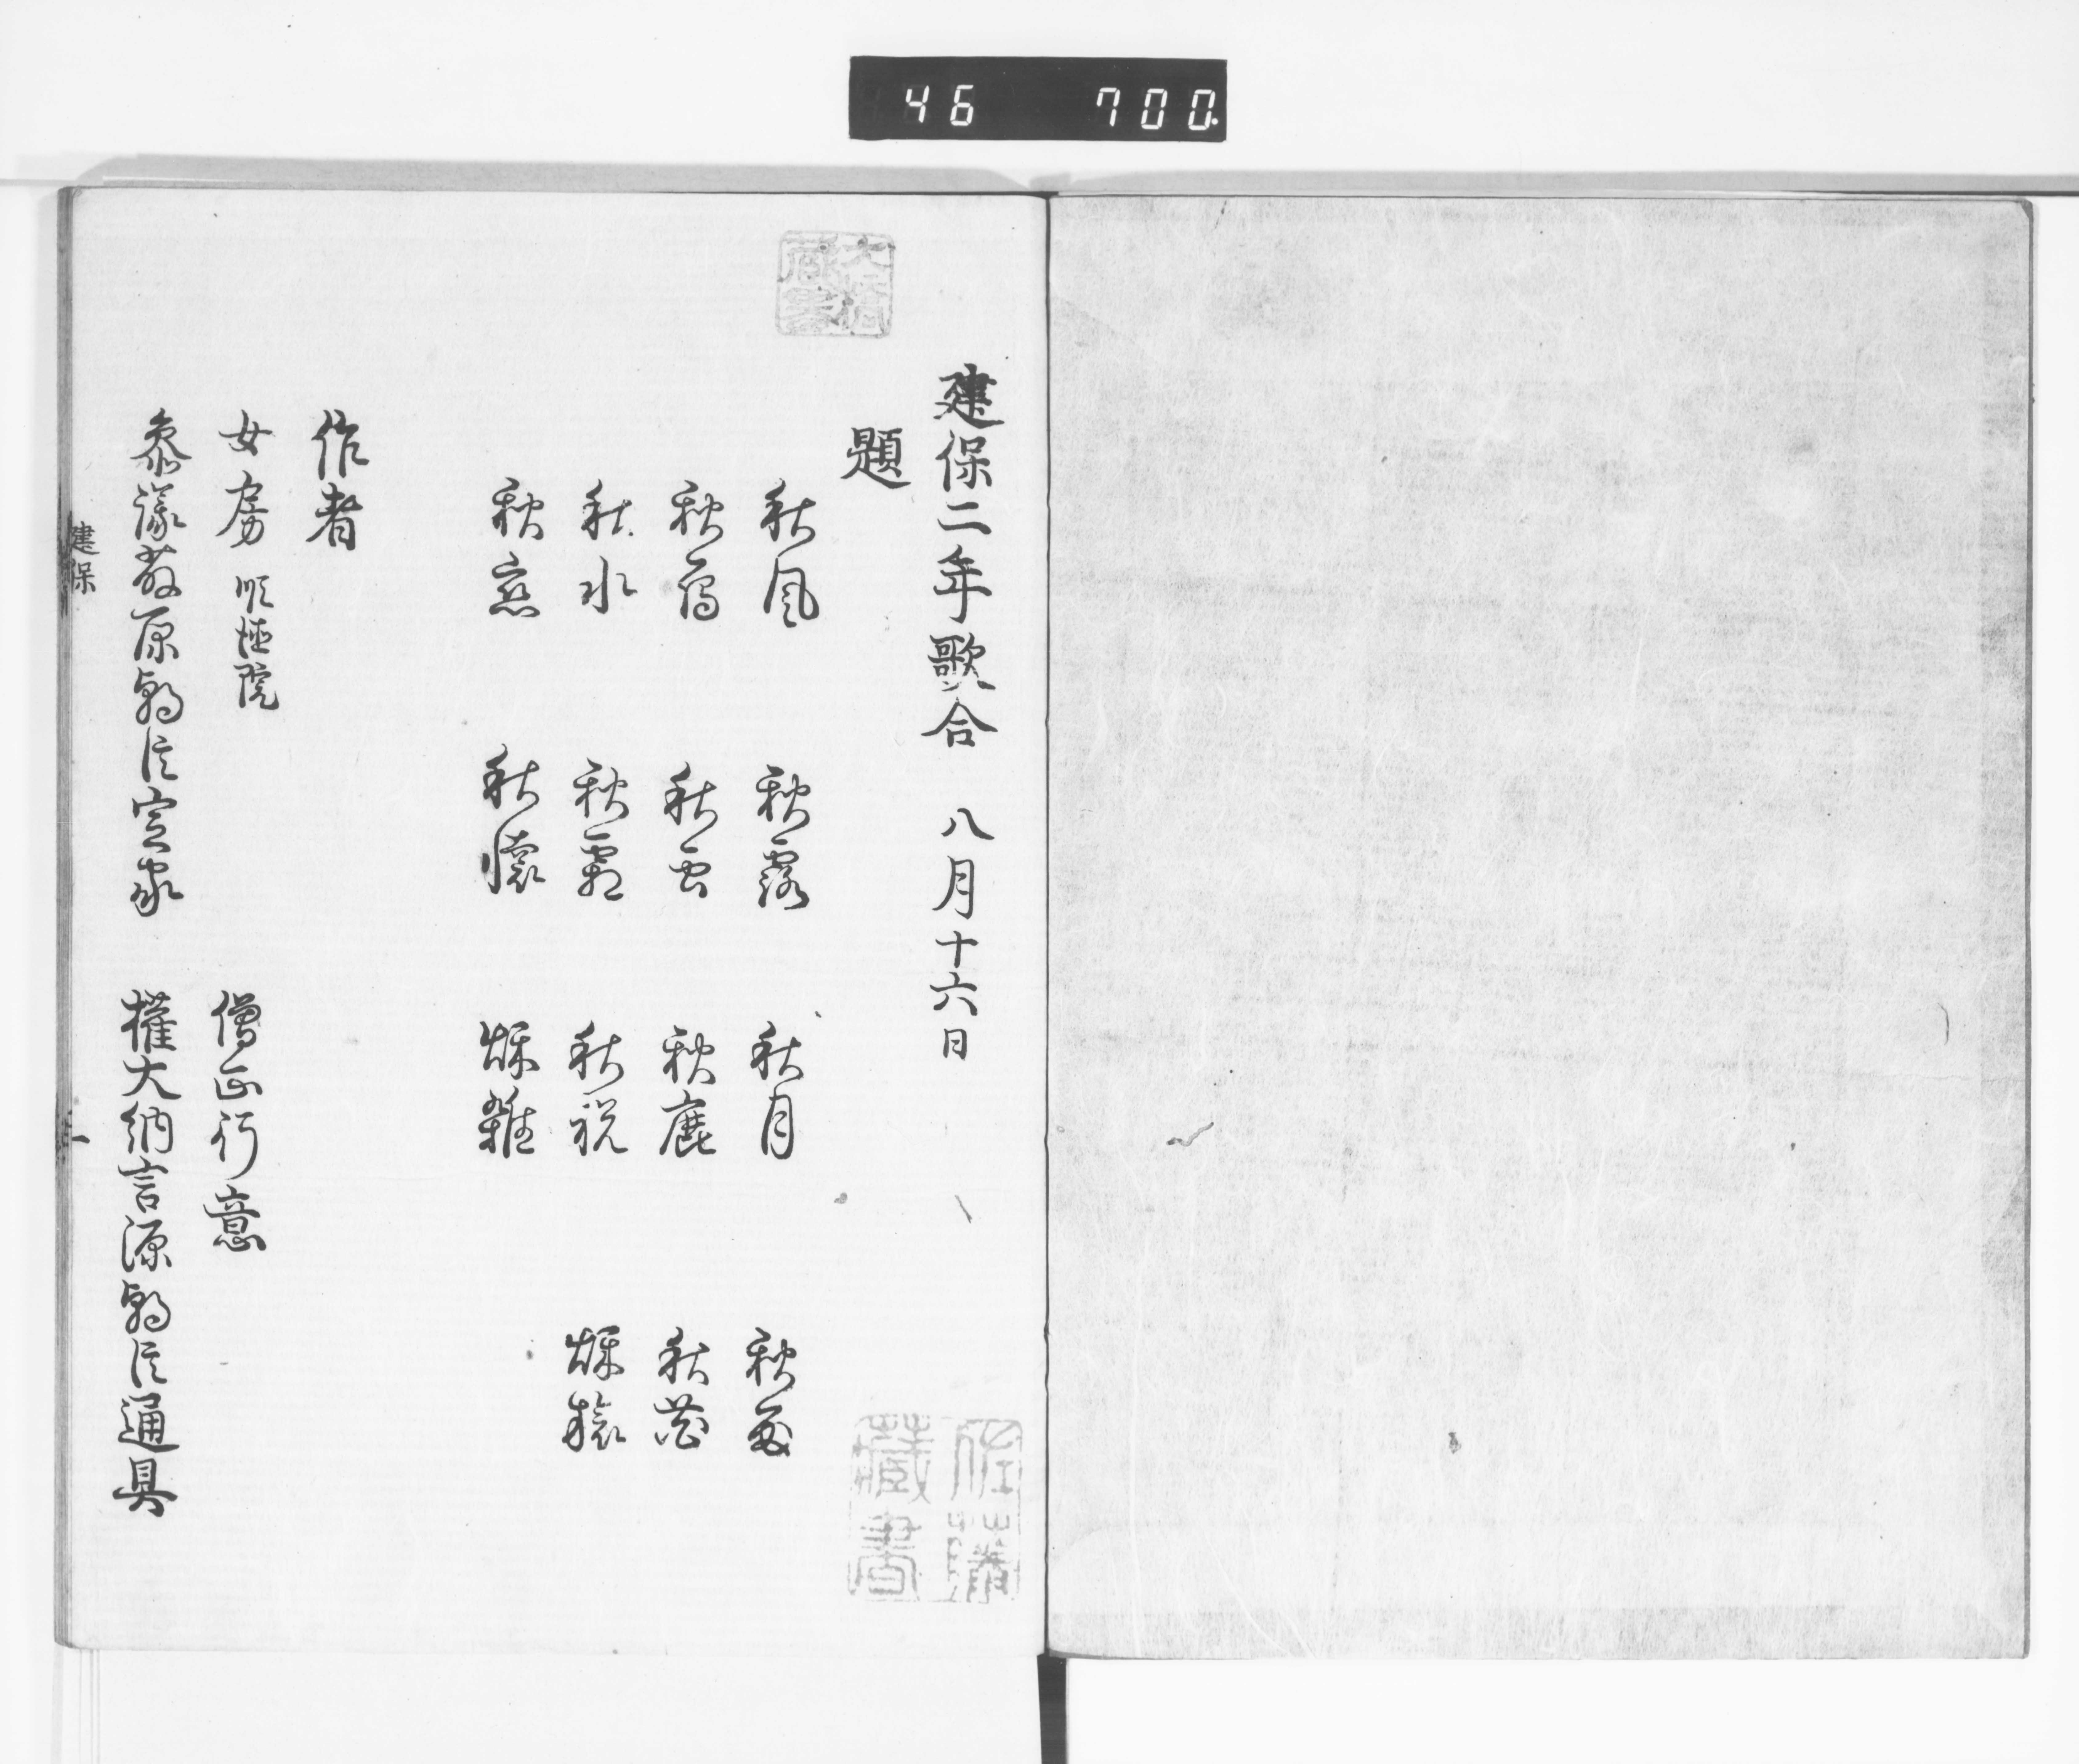 46 700.
建保二年歌合 八月十六日
題
秋風 秋露 秋月 秋雨
秋鴈 秋虫 秋鹿 秋花
秋水 秋霜 秋祝
秋恋 秋懐 龝雑
作者
女房 順徳院 僧正行意
参議藤原朝臣定家 権大納言源朝臣通具
建保
一
佐藤
蔵書